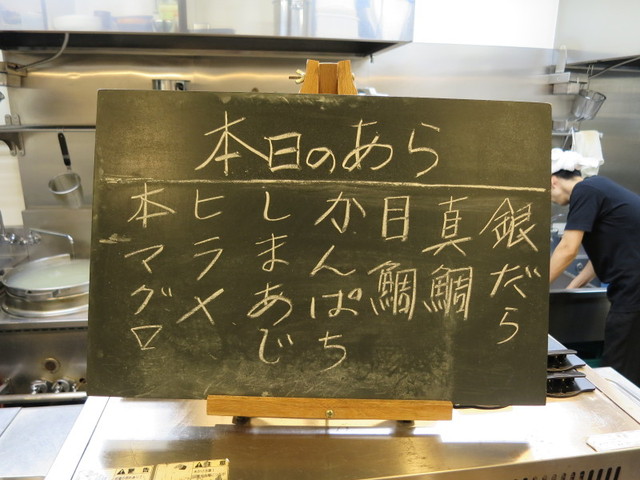 本日のあら
銀だら
真鯛
目鯛
かんぱち
しまあじ
ヒラメ
本マグロ
警告
注意